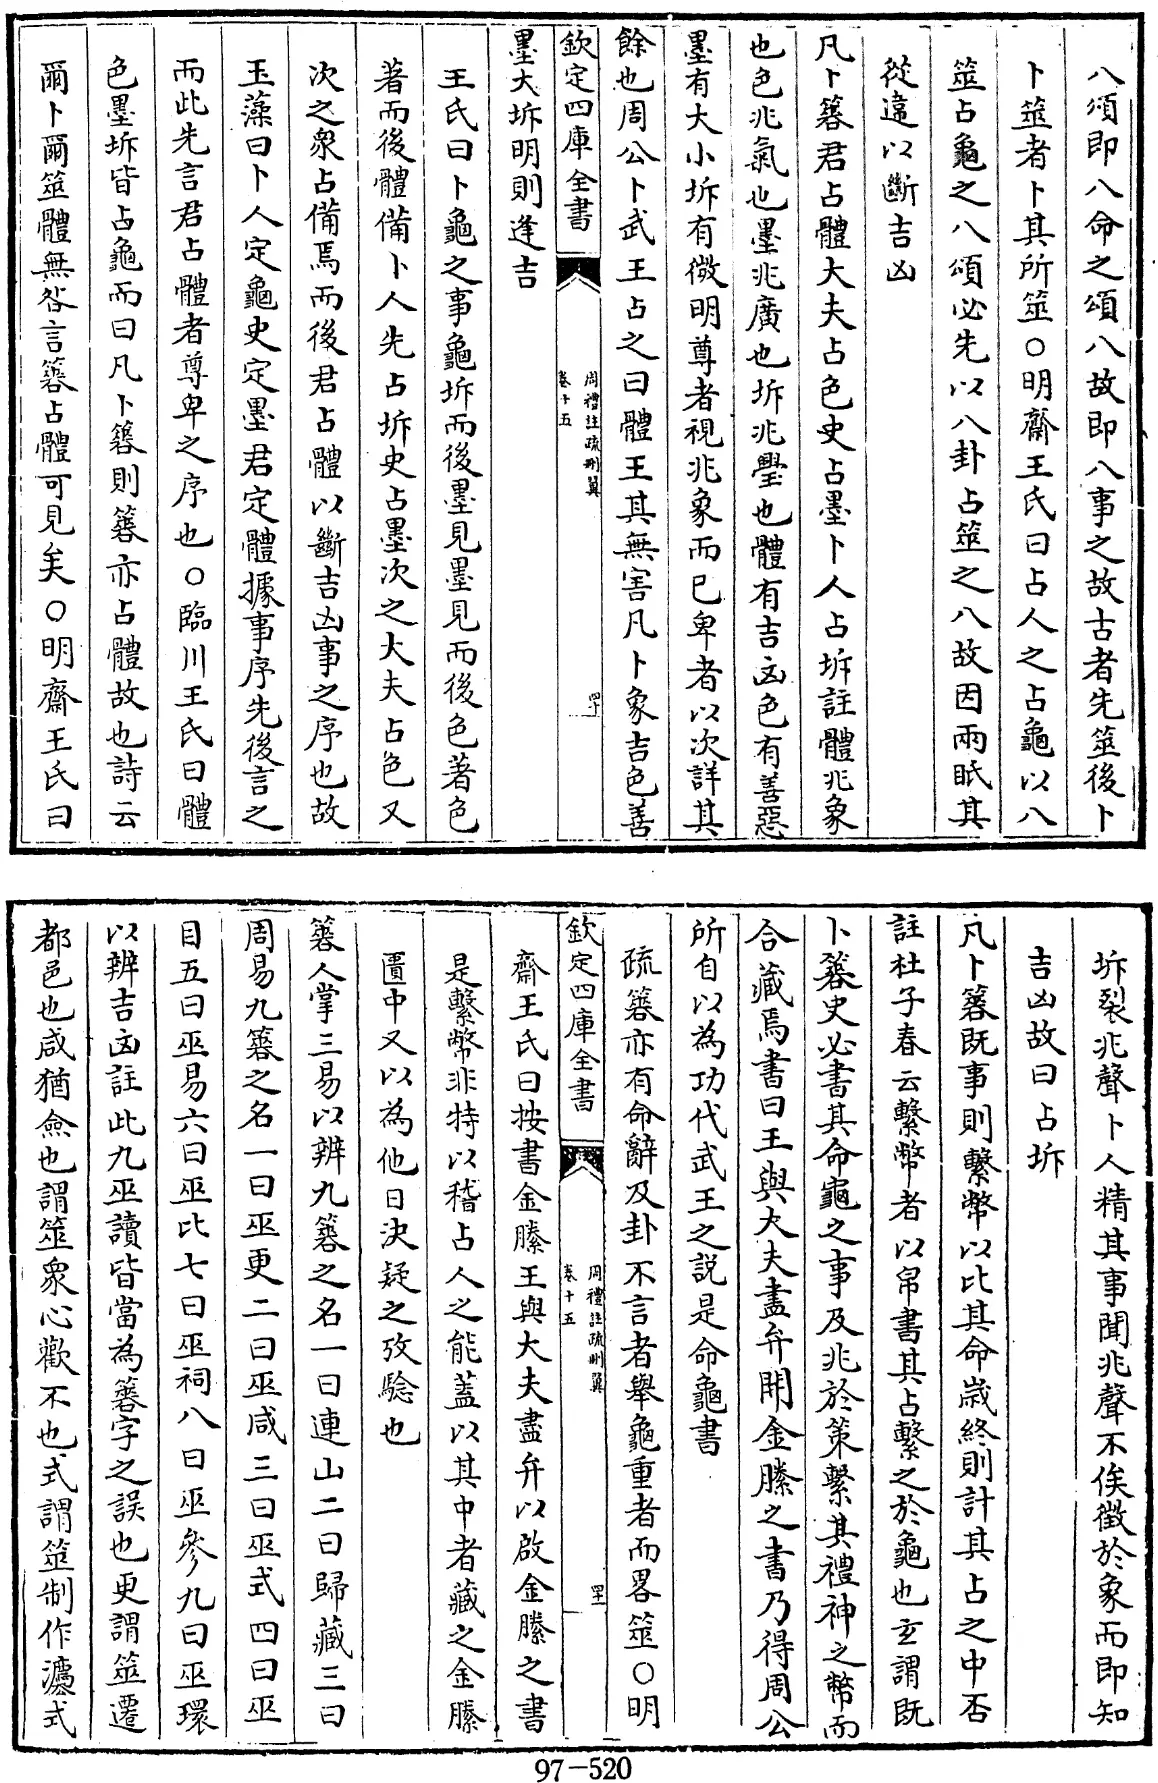 八頌即八命之頌八故即八事之故古者先筮後卜
卜筮者卜其所筮○明齋王氏曰占人之占龜以八
筮占龜之八頌必先以八卦占筮之八故因兩眂其
從違以斷吉凶
凡卜簭君占體大夫占色史占墨卜人占坼註體兆象
也色兆氣也墨兆廣也坼兆舋也體有吉凶色有善惡
墨有大小坼有微明尊者視兆象而已卑者以次詳其
餘也周公卜武王占之曰體王其無害凡卜象吉色善
欽定四庫全書
周禮註疏刪翼
卷十五
四十
墨大坼明則逢吉
王氏曰卜龜之事龜坼而後墨見墨見而後色著色
著而後體備卜人先占坼史占墨次之大夫占色又
次之衆占備焉而後君占體以斷吉凶事之序也故
玉藻曰卜人定龜史定墨君定體據事序先後言之
而此先言君占體者尊卑之序也○臨川王氏曰體
色墨坼皆占龜而曰凡卜簭則簭亦占體故也詩云
爾卜爾筮體無咎言簭占體可見矣○明齋王氏曰
坼裂兆聲卜人精其事聞兆聲不俟徵於象而即知
吉凶故曰占坼
凡卜簭既事則繫幣以比其命歲終則計其占之中否
註杜子春云繫幣者以帛書其占繫之於龜也玄謂既
卜簭史必書其命龜之事及兆於策繫其禮神之幣而
合藏焉書曰王與大夫盡弁開金縢之書乃得周公
所自以為功代武王之説是命龜書
疏簭亦有命辭及卦不言者舉龜重者而畧筮○明
欽定四庫全書
周禮註疏刪翼
卷十五
四十一
齋王氏曰按書金縢王與大夫盡弁以啟金縢之書
是繫幣非特以稽占人之能蓋以其中者藏之金縢
匱中又以為他日決疑之攷驗也
簭人掌三易以辨九簭之名一曰連山二曰歸藏三曰
周易九簭之名一曰巫更二曰巫咸三曰巫式四曰巫
目五曰巫易六曰巫比七曰巫祠八曰巫參九曰巫環
以辨吉凶註此九巫讀皆當為簭字之誤也更謂筮遷
都邑也咸猶僉也謂筮衆心歡不也式謂筮制作灋式
97-520